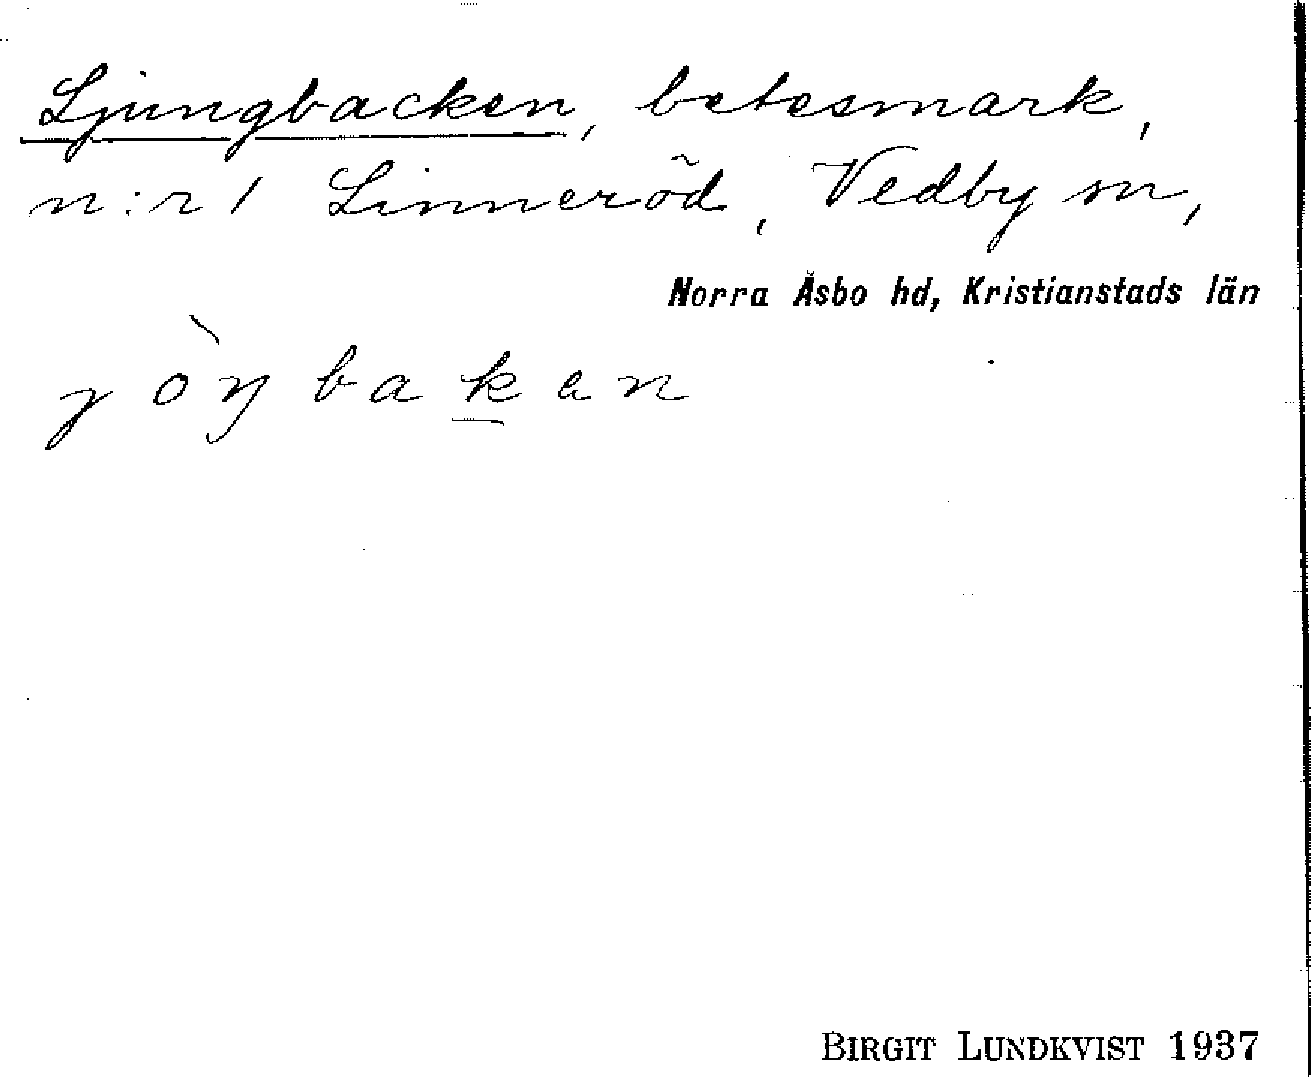 Ljungbacken, betesmark,
n:r 1 Linneröd, Vedby sn,
Norra Åsbo hd, Kristianstads län
jòŋbaken
BIRGIT LUNDKVIST 1937